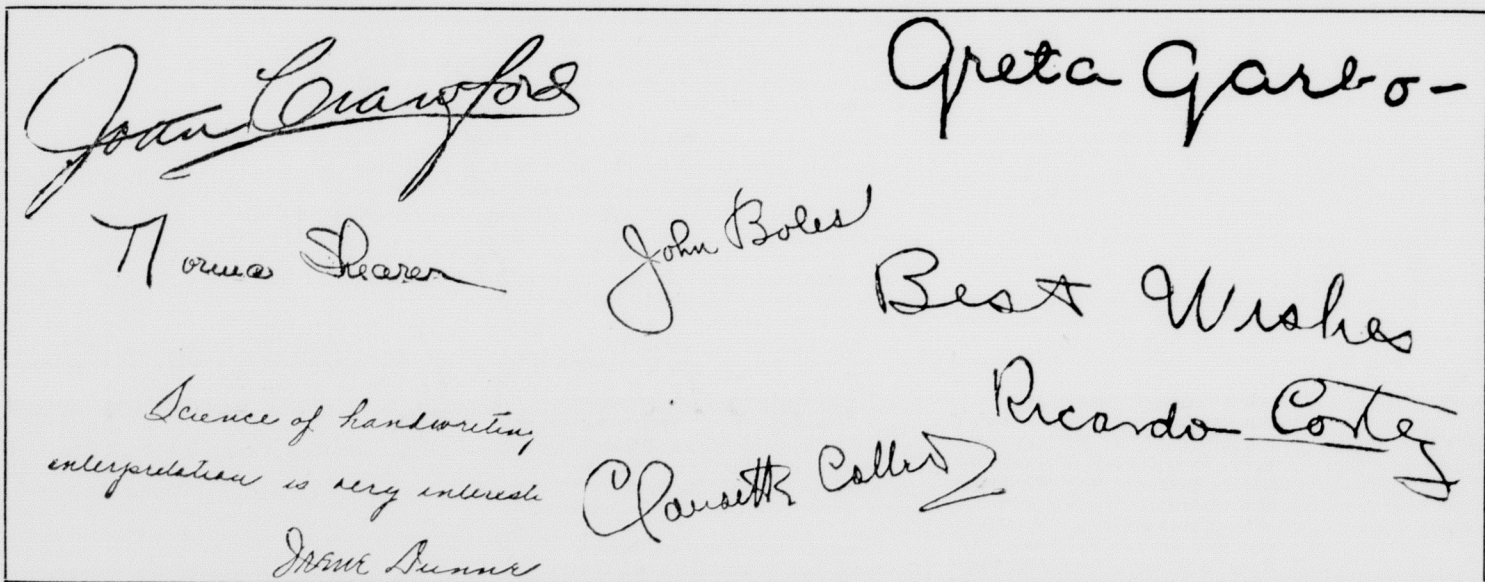 Joan Crawford
Greta Garbo-
Norma Shearer
John Boles
Best Wishes
Ricardo Cortez
Science of handwriting
interpretation is very interesti
Irene Dunne
Claudette Colbert